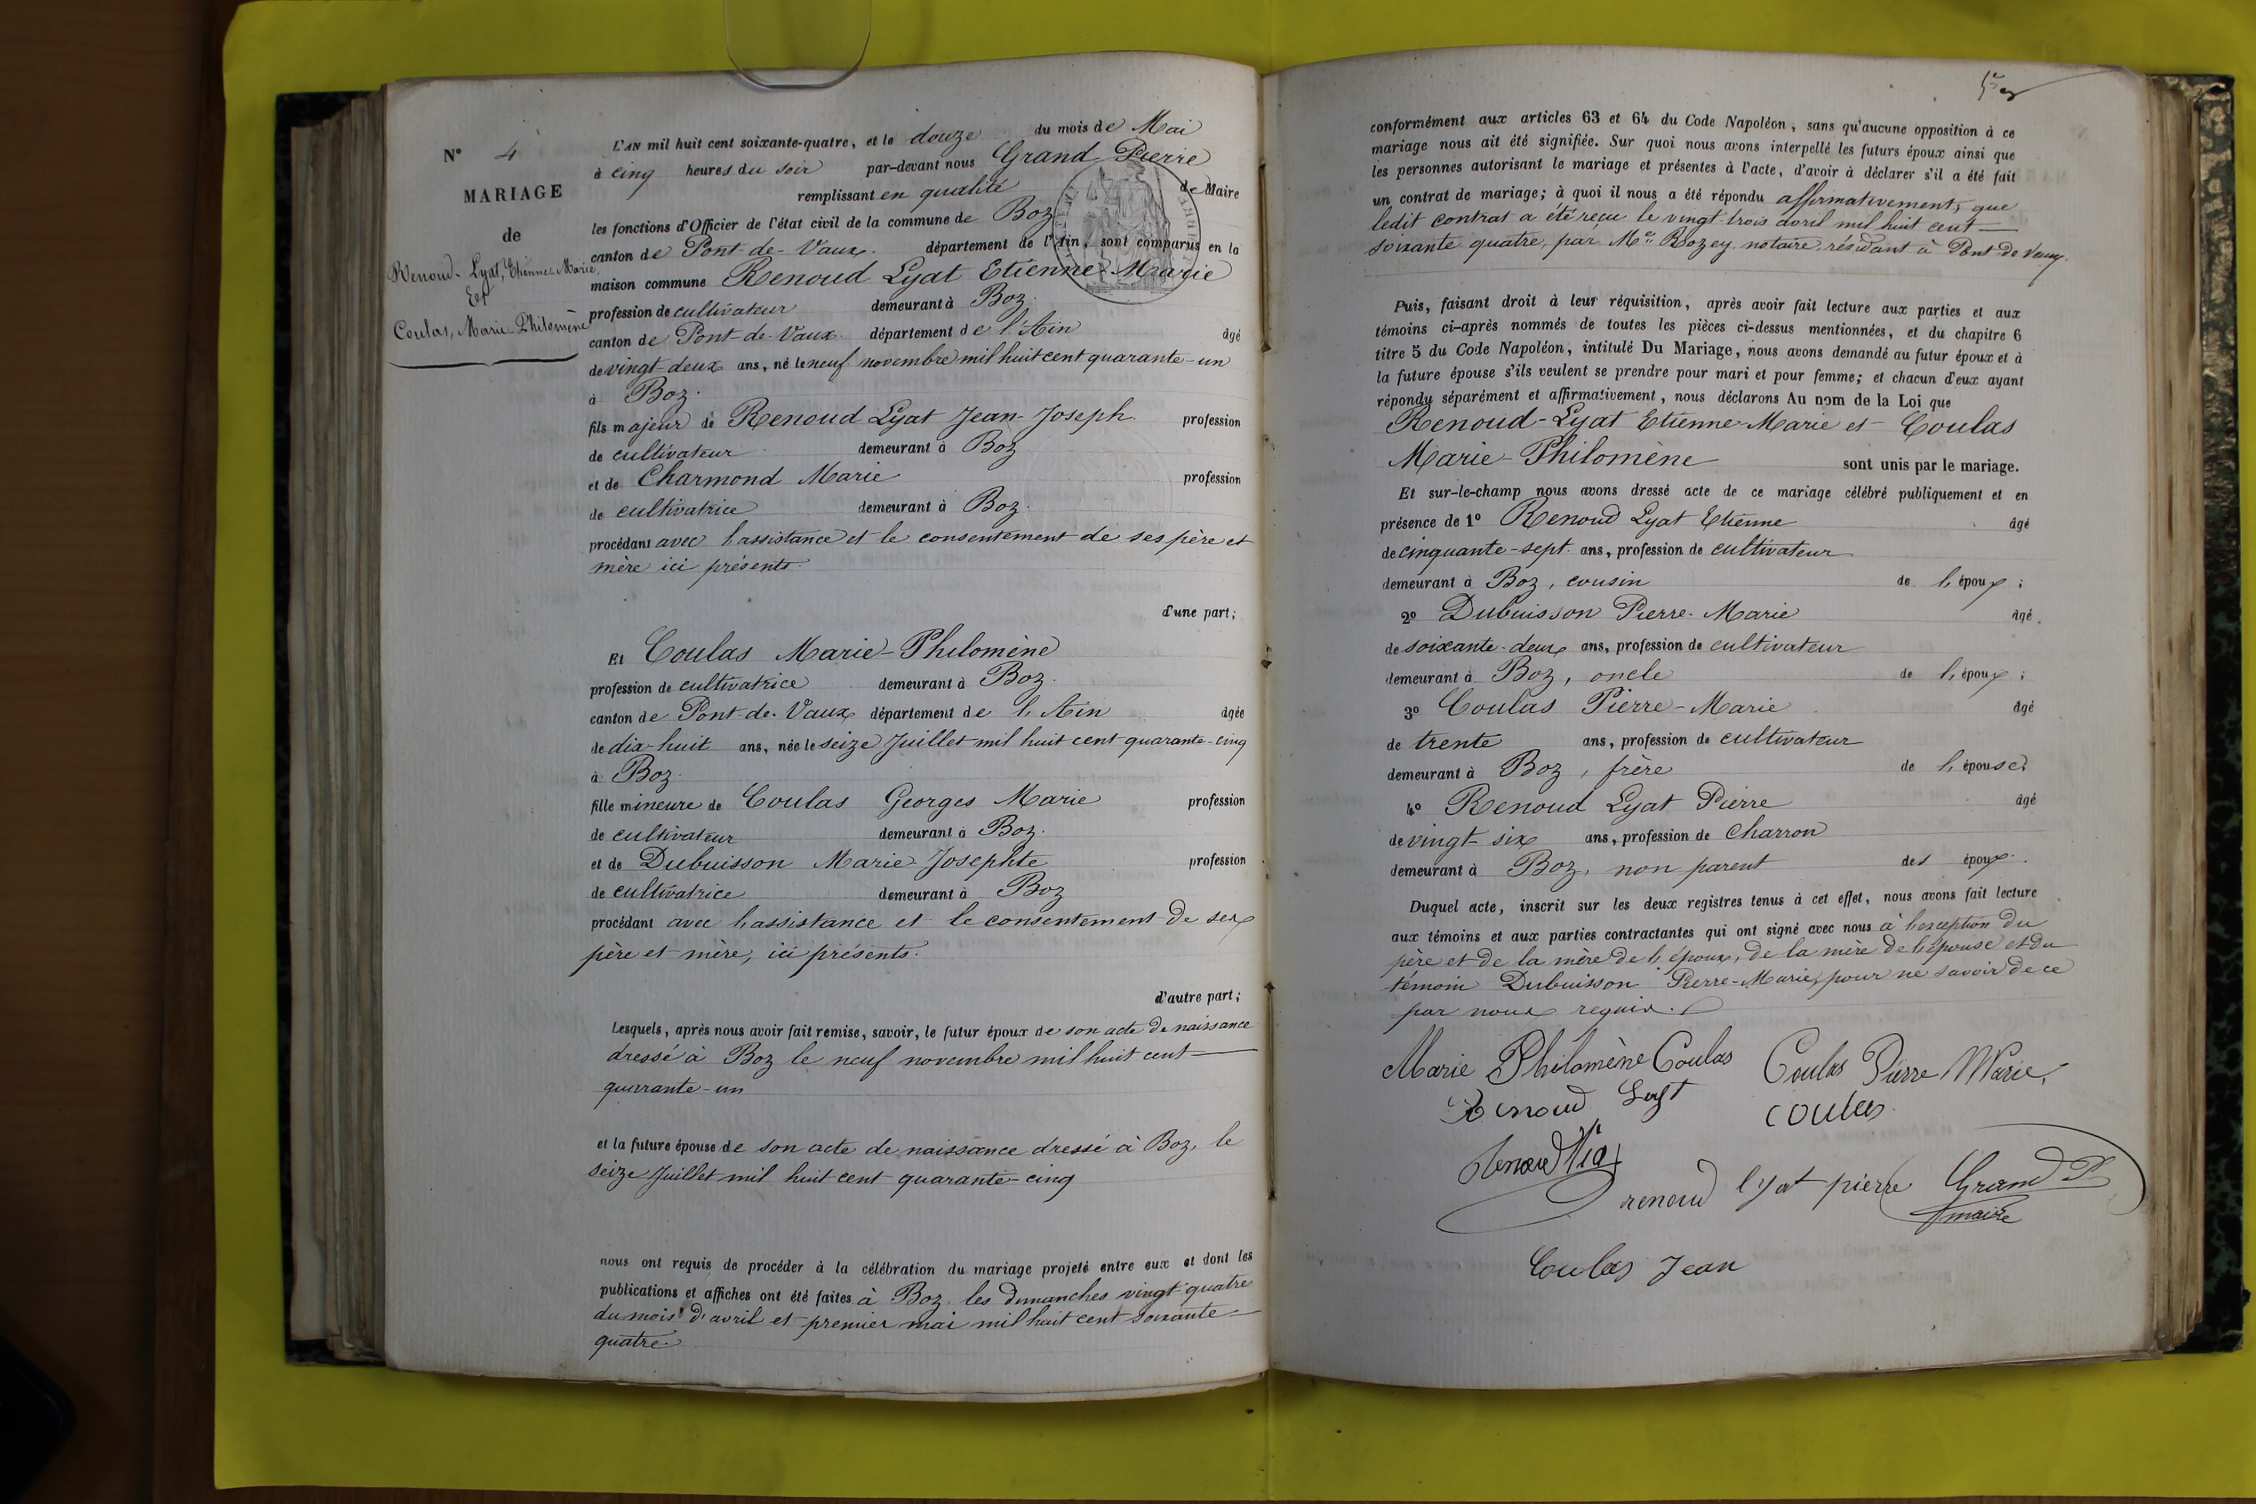 N° 4
MARIAGE
de
Renoud-Lyat, Etienne-Marie,
Et
Coulas, Marie-Philomène
L'AN mil huit cent soixante-quatre, et le douze du mois de Mai
à cinq heures du soir par-devant nous Grand Pierre
remplissant en qualité de Maire
les fonctions d'Officier de l'état civil de la commune de Boz
canton de Pont-de-Vaux département de l'Ain, sont comparus en la
maison commune Renoud Lyat Etienne-Marie
profession de cultivateur demeurant à Boz
canton de Pont-de-Vaux département de l'Ain âgé
de vingt-deux ans, né le neuf novembre mil huit cent quarante-un
à Boz.
fils majeur de Renoud Lyat Jean-Joseph profession
de cultivateur demeurant à Boz
et de Charmond Marie profession
de cultivatrice demeurant à Boz.
procédant avec l'assistance et le consentement de ses père et
mère ici présents.
d'une part;
Et Coulas Marie-Philomène
profession de cultivatrice demeurant à Boz.
canton de Pont-de-Vaux département de l'Ain âgée
de dix-huit ans, née le seize Juillet mil huit cent quarante-cinq
à Boz.
fille mineure de Coulas Georges Marie profession
de cultivateur demeurant à Boz.
et de Dubuisson Marie Josephte profession
de cultivatrice demeurant à Boz
procédant avec l'assistance et le consentement de ses
père et mère, ici présents.
d'autre part;
Lesquels, après nous avoir fait remise, savoir, le futur époux de son acte de naissance
dressé à Boz le neuf novembre mil huit cent
quarante-un
et la future épouse de son acte de naissance dressé à Boz, le
seize Juillet mil huit cent quarante-cinq
nous ont requis de procéder à la célébration du mariage projeté entre eux et dont les
publications et affiches ont été faites à Boz les dimanches vingt-quatre
du mois d'avril et premier mai mil huit cent soixante
quatre.
conformément aux articles 63 et 64 du Code Napoléon, sans qu'aucune opposition à ce
mariage nous ait été signifiée. Sur quoi nous avons interpellé les futurs époux ainsi que
les personnes autorisant le mariage et présentes à l'acte, d'avoir à déclarer s'il a été fait
un contrat de mariage; à quoi il nous a été répondu affirmativement, que
ledit contrat a été reçu le vingt trois avril mil huit cent
soixante quatre, par Me Bozey notaire résidant à Pont-de-Vaux.
Puis, faisant droit à leur réquisition, après avoir fait lecture aux parties et aux
témoins ci-après nommés de toutes les pièces ci-dessus mentionnées, et du chapitre 6
titre 5 du Code Napoléon, intitulé Du Mariage, nous avons demandé au futur époux et à
la future épouse s'ils veulent se prendre pour mari et pour femme; et chacun d'eux ayant
répondu séparément et affirmativement, nous déclarons Au nom de la Loi que
Renoud-Lyat Etienne-Marie et Coulas
Marie-Philomène sont unis par le mariage.
Et sur-le-champ nous avons dressé acte de ce mariage célébré publiquement et en
présence de 1° Renoud Lyat Etienne âgé
de cinquante-sept ans, profession de cultivateur
demeurant à Boz, cousin de l'époux;
2° Dubuisson Pierre-Marie âgé
de soixante-deux ans, profession de cultivateur
demeurant à Boz, oncle de l'époux;
3° Coulas Pierre-Marie âgé
de trente ans, profession de cultivateur
demeurant à Boz, frère de l'épouse;
4° Renoud Lyat Pierre âgé
de vingt six ans, profession de charron
demeurant à Boz, non parent des époux.
Duquel acte, inscrit sur les deux registres tenus à cet effet, nous avons fait lecture
aux témoins et aux parties contractantes qui ont signé avec nous à l'exception du
père et de la mère de l'époux, de la mère de l'épouse et du
témoin Dubuisson Pierre-Marie, pour ne savoir de ce
par nous requis.
Marie Philomène Coulas Coulas Pierre Marie,
Renoud Coulas
renoud lyat pierre Grand P
maire
Coulas Jean